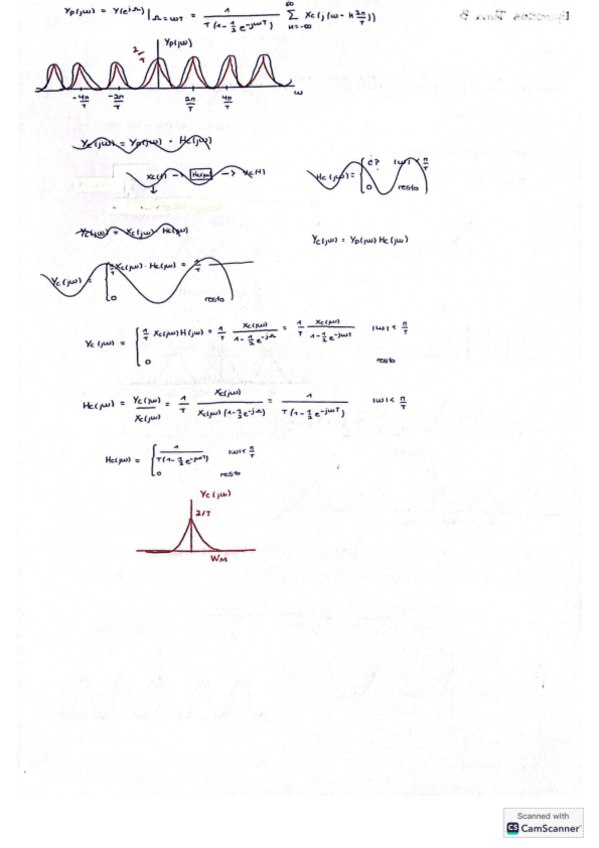 Yp(jω) = Y(e^jΩ)|Ω=ωT = 1 / T(1-1/2 e^-jωT) ∞ Σ k=-∞ Xc(j(ω-k 2π/T))
2/T Yp(jω)
-4π/T -2π/T 2π/T 4π/T ω
Yc(jω) = Yp(jω) · Hc(jω)
Xc(t) → Hc(jω) → Yc(t)
Hc(jω) = { ¿? |ω| < π/T
0 resto
Yc(jω) = Xc(jω) Hc(jω)
Yc(jω) = Yp(jω) Hc(jω)
Yc(jω) = { Xc(jω) · Hc(jω) = 1/T
0 resto
Yc(jω) = { 1/T Xc(jω) H(jω) = 1/T Xc(jω) / 1-1/2 e^-jΩ = 1/T Xc(jω) / 1-1/2 e^-jωT |ω| < π/T
0 resto
Hc(jω) = Yc(jω) / Xc(jω) = 1/T Xc(jω) / Xc(jω)(1-1/2 e^-jΩ) = 1 / T(1-1/2 e^-jωT) |ω| < π/T
Hc(jω) = { 1 / T(1-1/2 e^-jωT) |ω| < π/T
0 resto
Yc(jω)
2/T
WM
Scanned with
CS CamScanner